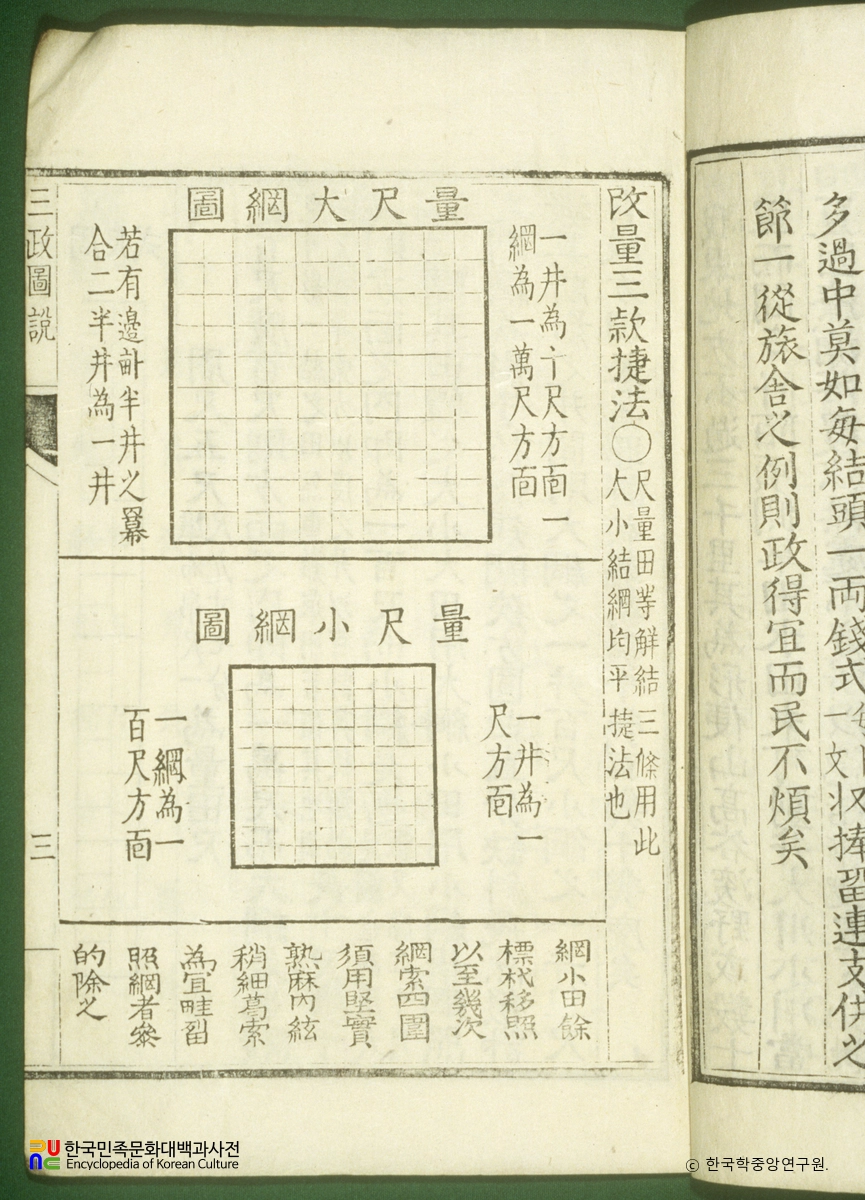 節一從旅舍之例則政得宜而民不煩矣
改量三款捷法○
尺量田等解結三條用此
大小結網均平捷法也
量尺大網圖
一井為十尺方面一
網為一萬尺方面
若有邊畝半井之冪
合二半井為一井
量尺小網圖
一井為一
尺方面
一網為一
百尺方面
網小田餘
標杙移照
以至幾次
網索四圍
須用堅實
熟麻內絃
稍細葛索
為宜畦畓
照網者參
的除之
三政圖說
三
한국민족문화대백과사전
Encyclopedia of Korean Culture
ⓒ 한국학중앙연구원.